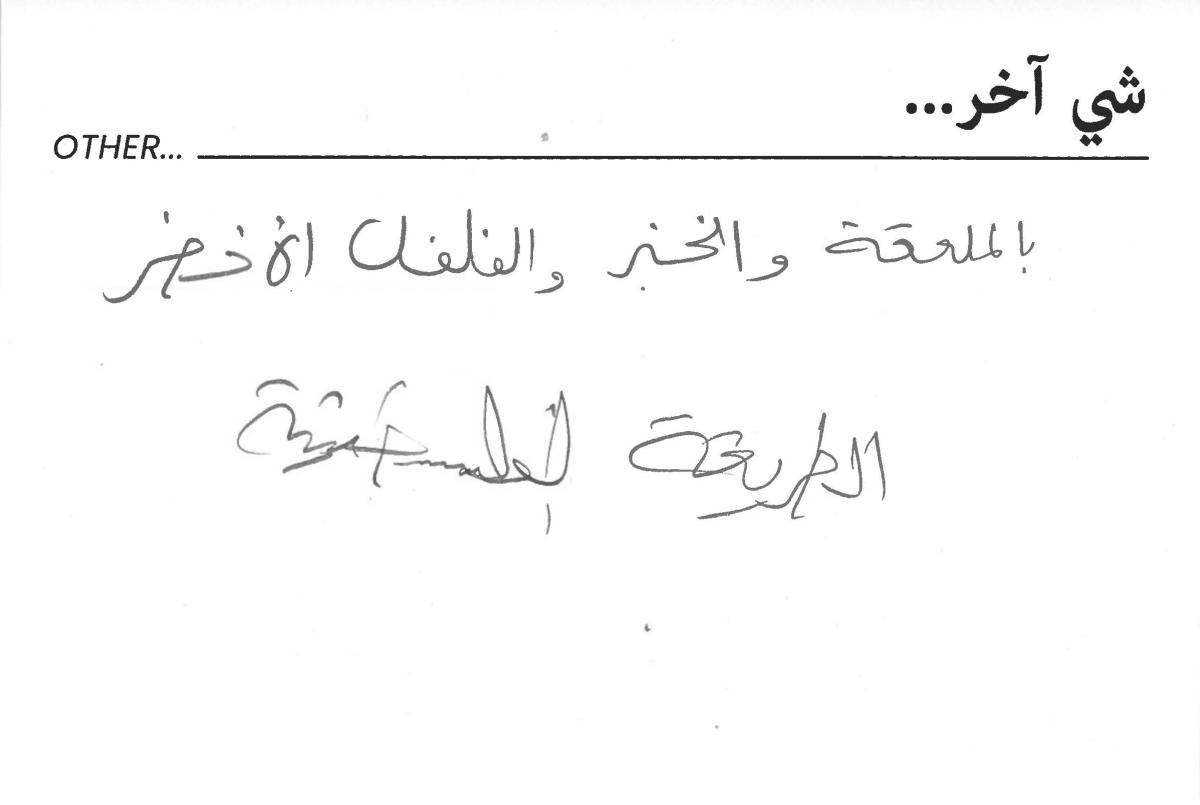 شي آخر...
OTHER...
بالملعقة والخبز والفلفل الأخضر
الطريقة الفلسطينية